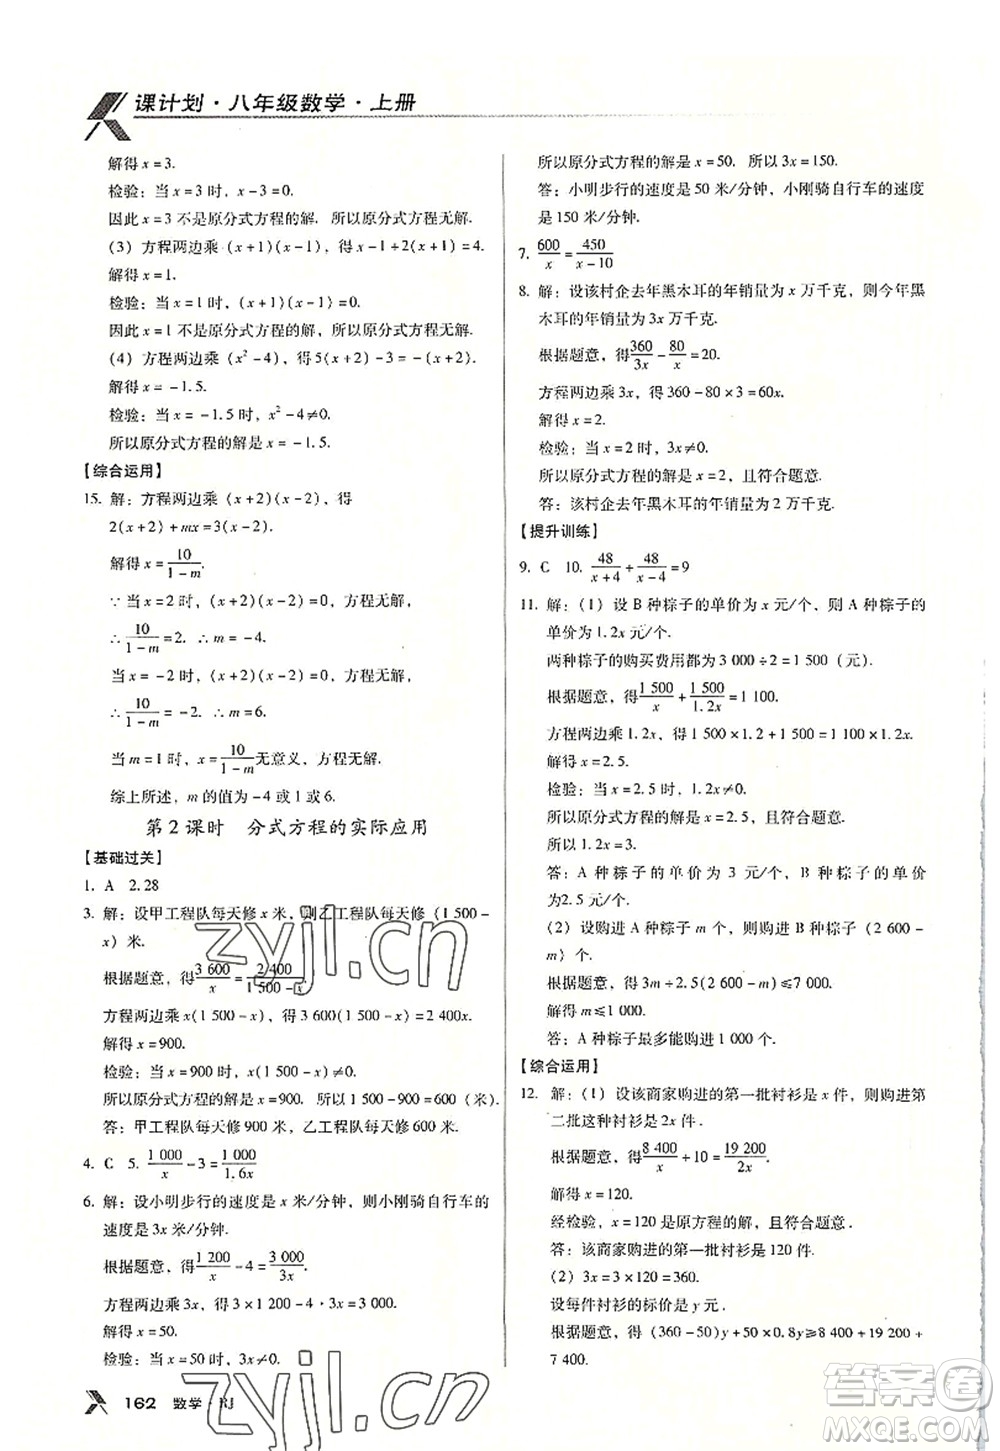 课计划·八年级数学·上册
解得 x=3.
检验：当 x=3 时，x-3=0.
因此 x=3 不是原分式方程的解. 所以原分式方程无解.
(3) 方程两边乘 (x+1)(x-1)，得 x-1+2(x+1)=4.
解得 x=1.
检验：当 x=1 时，(x+1)(x-1)=0.
因此 x=1 不是原分式方程的解. 所以原分式方程无解.
(4) 方程两边乘 (x²-4)，得 5(x+2)-1=x-1.
解得 x=-1.5.
检验：当 x=-1.5 时，x²-4≠0.
所以原分式方程的解是 x=-1.5.
【综合运用】
15. 解：方程两边乘 (x+2)(x-2)，得
2(x+2)+mx=3(x-2).
解得 x=10/(1-m).
∵当 x=2 时，(x+2)(x-2)=0，方程无解，
∴10/(1-m)=2. ∴m=-4.
当 x=-2 时，(x+2)(x-2)=0，方程无解，
∴10/(1-m)=-2. ∴m=6.
当 m=1 时，x=10/(1-m)无意义，方程无解.
综上所述，m 的值为 -4 或 1 或 6.
第 2 课时 分式方程的实际应用
【基础过关】
1. A 2. 28
3. 解：设甲工程队每天修 x 米，则乙工程队每天修 (1 500-
x) 米.
根据题意，得 3 600/x=2 400/(1 500-x).
方程两边乘 x(1 500-x)，得 3 600(1 500-x)=2 400x.
解得 x=900.
检验：当 x=900 时，x(1 500-x)≠0.
所以原分式方程的解是 x=900. 所以 1 500-900=600(米).
答：甲工程队每天修 900 米，乙工程队每天修 600 米.
4. C 5. 1 000/x-3=1 000/1.6x
6. 解：设小明步行的速度是 x 米/分钟，则小刚骑自行车的
速度是 3x 米/分钟.
根据题意，得 1 200/x-4=3 000/3x.
方程两边乘 3x，得 3×1 200-4·3x=3 000.
解得 x=50.
检验：当 x=50 时，3x≠0.
162 数学·RJ
所以原分式方程的解是 x=50. 所以 3x=150.
答：小明步行的速度是 50 米/分钟，小刚骑自行车的速度
是 150 米/分钟.
7. 600/x=450/(x-10)
8. 解：设该村企去年黑木耳的年销量为 x 万千克，则今年黑
木耳的年销量为 3x 万千克.
根据题意，得 360/3x-80/x=20.
方程两边乘 3x，得 360-80×3=60x.
解得 x=2.
检验：当 x=2 时，3x≠0.
所以原分式方程的解是 x=2，且符合题意.
答：该村企去年黑木耳的年销量为 2 万千克.
【提升训练】
9. C 10. 48/(x+4)+48/(x-4)=9
11. 解：(1) 设 B 种粽子的单价为 x 元/个，则 A 种粽子的
单价为 1.2x 元/个.
两种粽子的购买费用都为 3 000÷2=1 500 (元).
根据题意，得 1 500/x+1 500/1.2x=1 100.
方程两边乘 1.2x，得 1 500×1.2+1 500=1 100×1.2x.
解得 x=2.5.
检验：当 x=2.5 时，1.2x≠0.
所以原分式方程的解是 x=2.5，且符合题意.
所以 1.2x=3.
答：A 种粽子的单价为 3 元/个，B 种粽子的单价
为 2.5 元/个.
(2) 设购进 A 种粽子 m 个，则购进 B 种粽子 (2 600-
m) 个.
根据题意，得 3m+2.5(2 600-m)≤7 000.
解得 m≤1 000.
答：A 种粽子最多能购进 1 000 个.
【综合运用】
12. 解：(1) 设该商家购进的第一批衬衫是 x 件，则购进第
二批这种衬衫是 2x 件.
根据题意，得 8 400/x+10=19 200/2x.
解得 x=120.
经检验，x=120 是原方程的解，且符合题意.
答：该商家购进的第一批衬衫是 120 件.
(2) 3x=3×120=360.
设每件衬衫的标价是 y 元.
根据题意，得 (360-50)y+50×0.8y≥8 400+19 200+
7 400.
zyjl.cn
zyjl.cn
答案圈
MXQE.COM